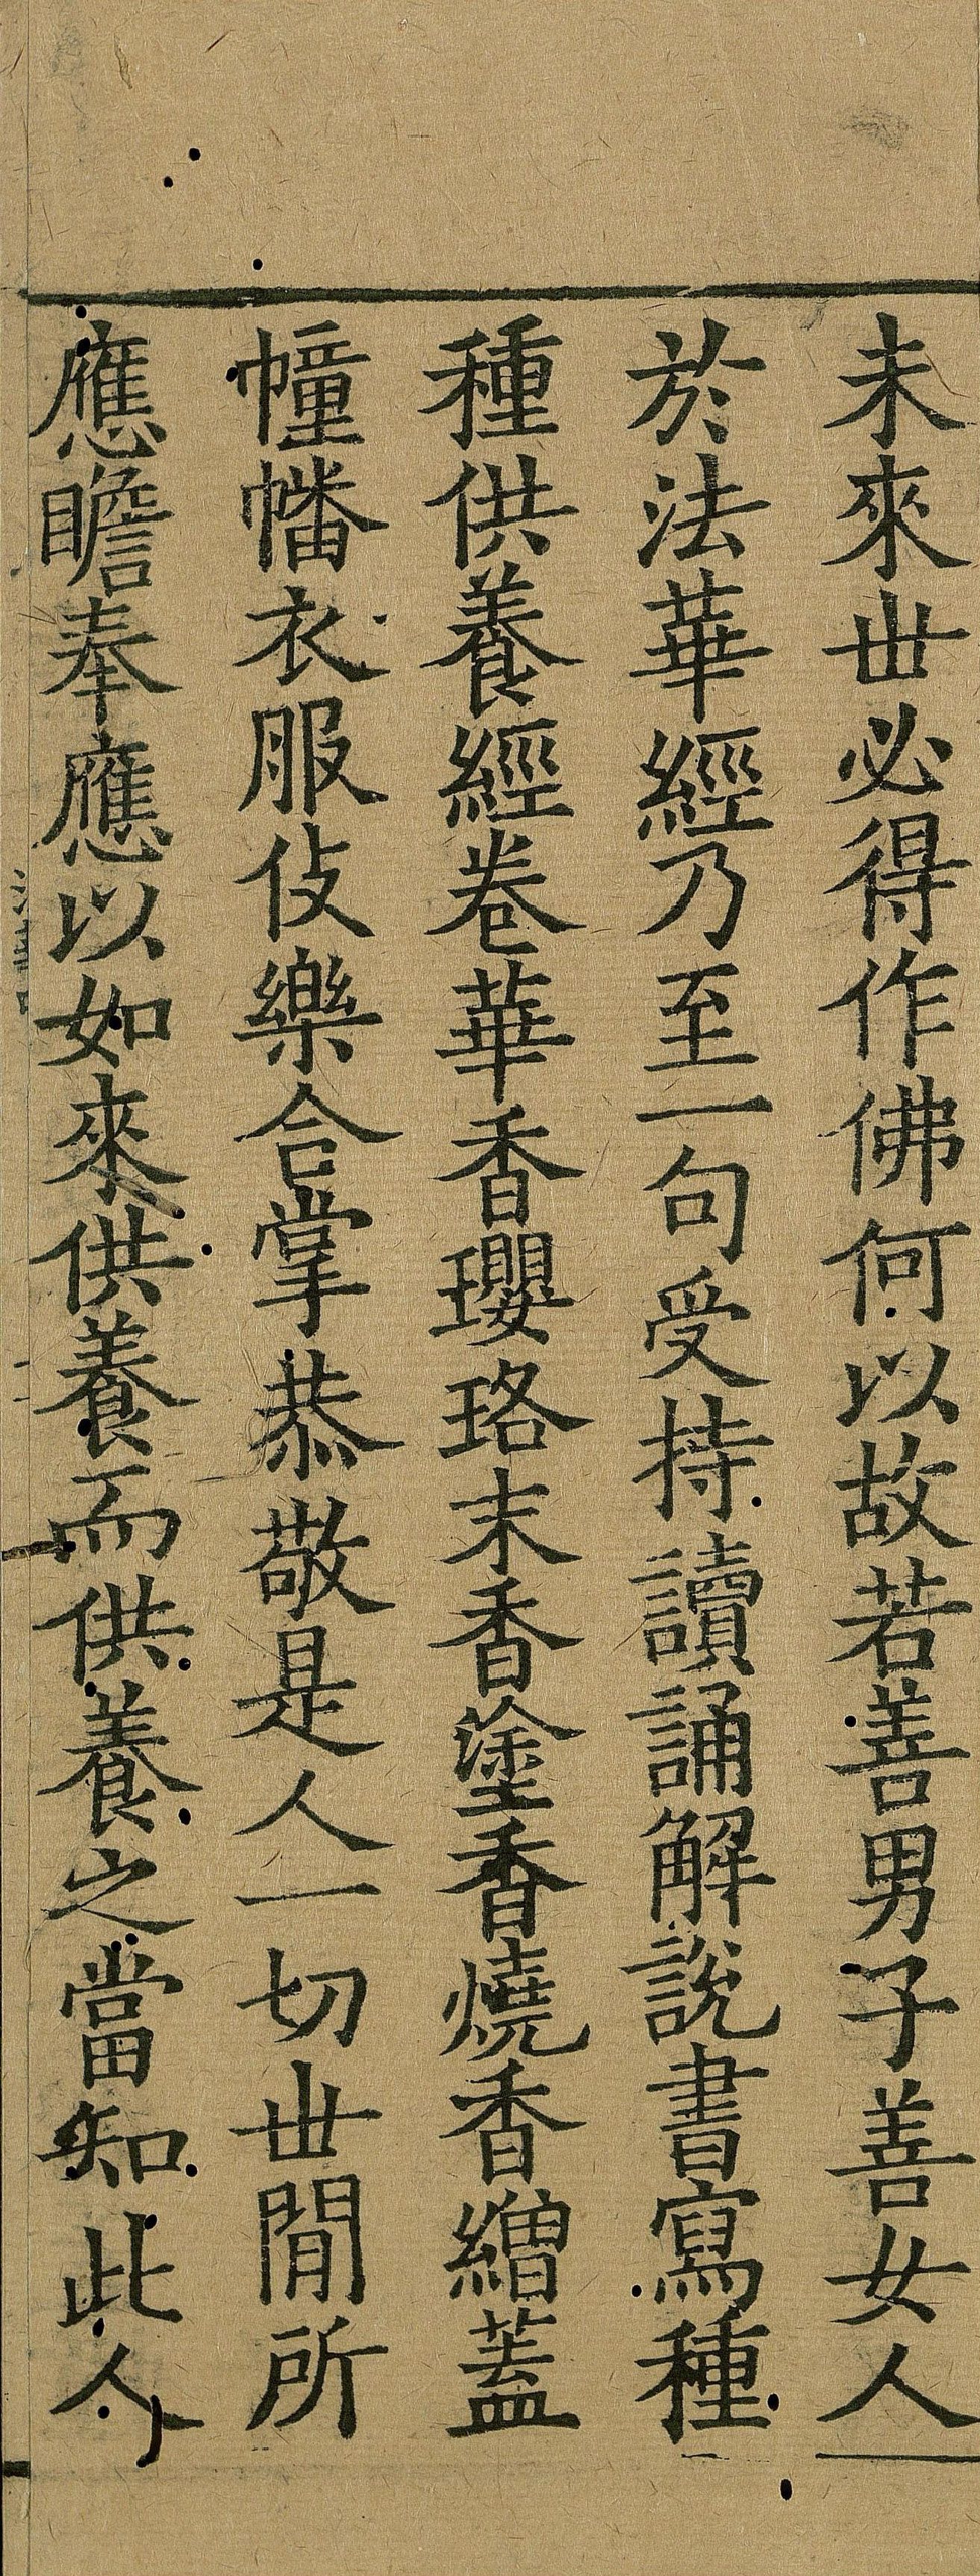 未來世必得作佛何以故若善男子善女人
於法華經乃至一句受持讀誦解說書寫種
種供養經卷華香瓔珞末香塗香燒香繒蓋
幢幡衣服伎樂合掌恭敬是人一切世閒所
應瞻奉應以如來供養而供養之當知此人